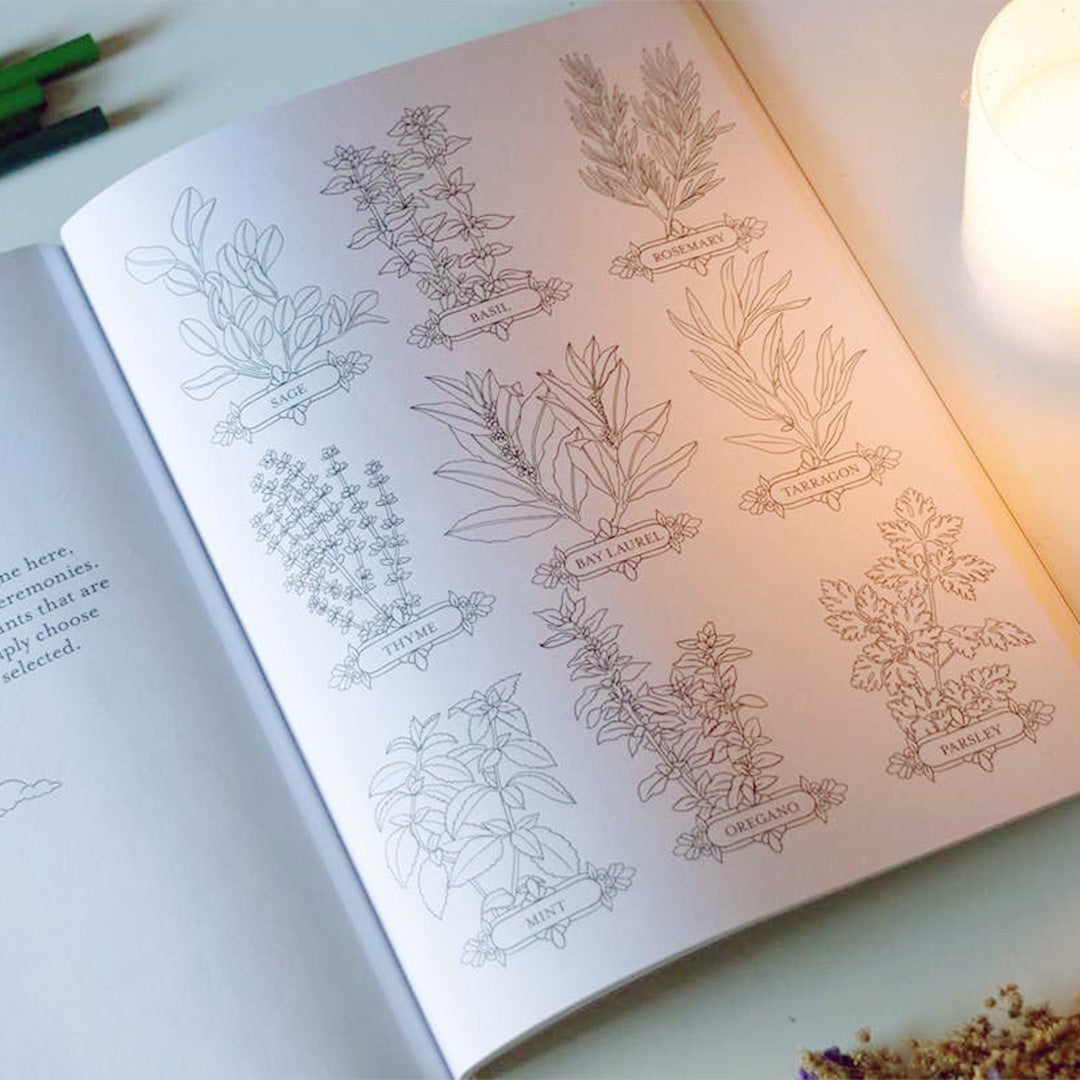 me here,
eremonies.
ants that are
ply choose
selected.
SAGE
BASIL
ROSEMARY
THYME
BAY LAUREL
TARRAGON
MINT
OREGANO
PARSLEY